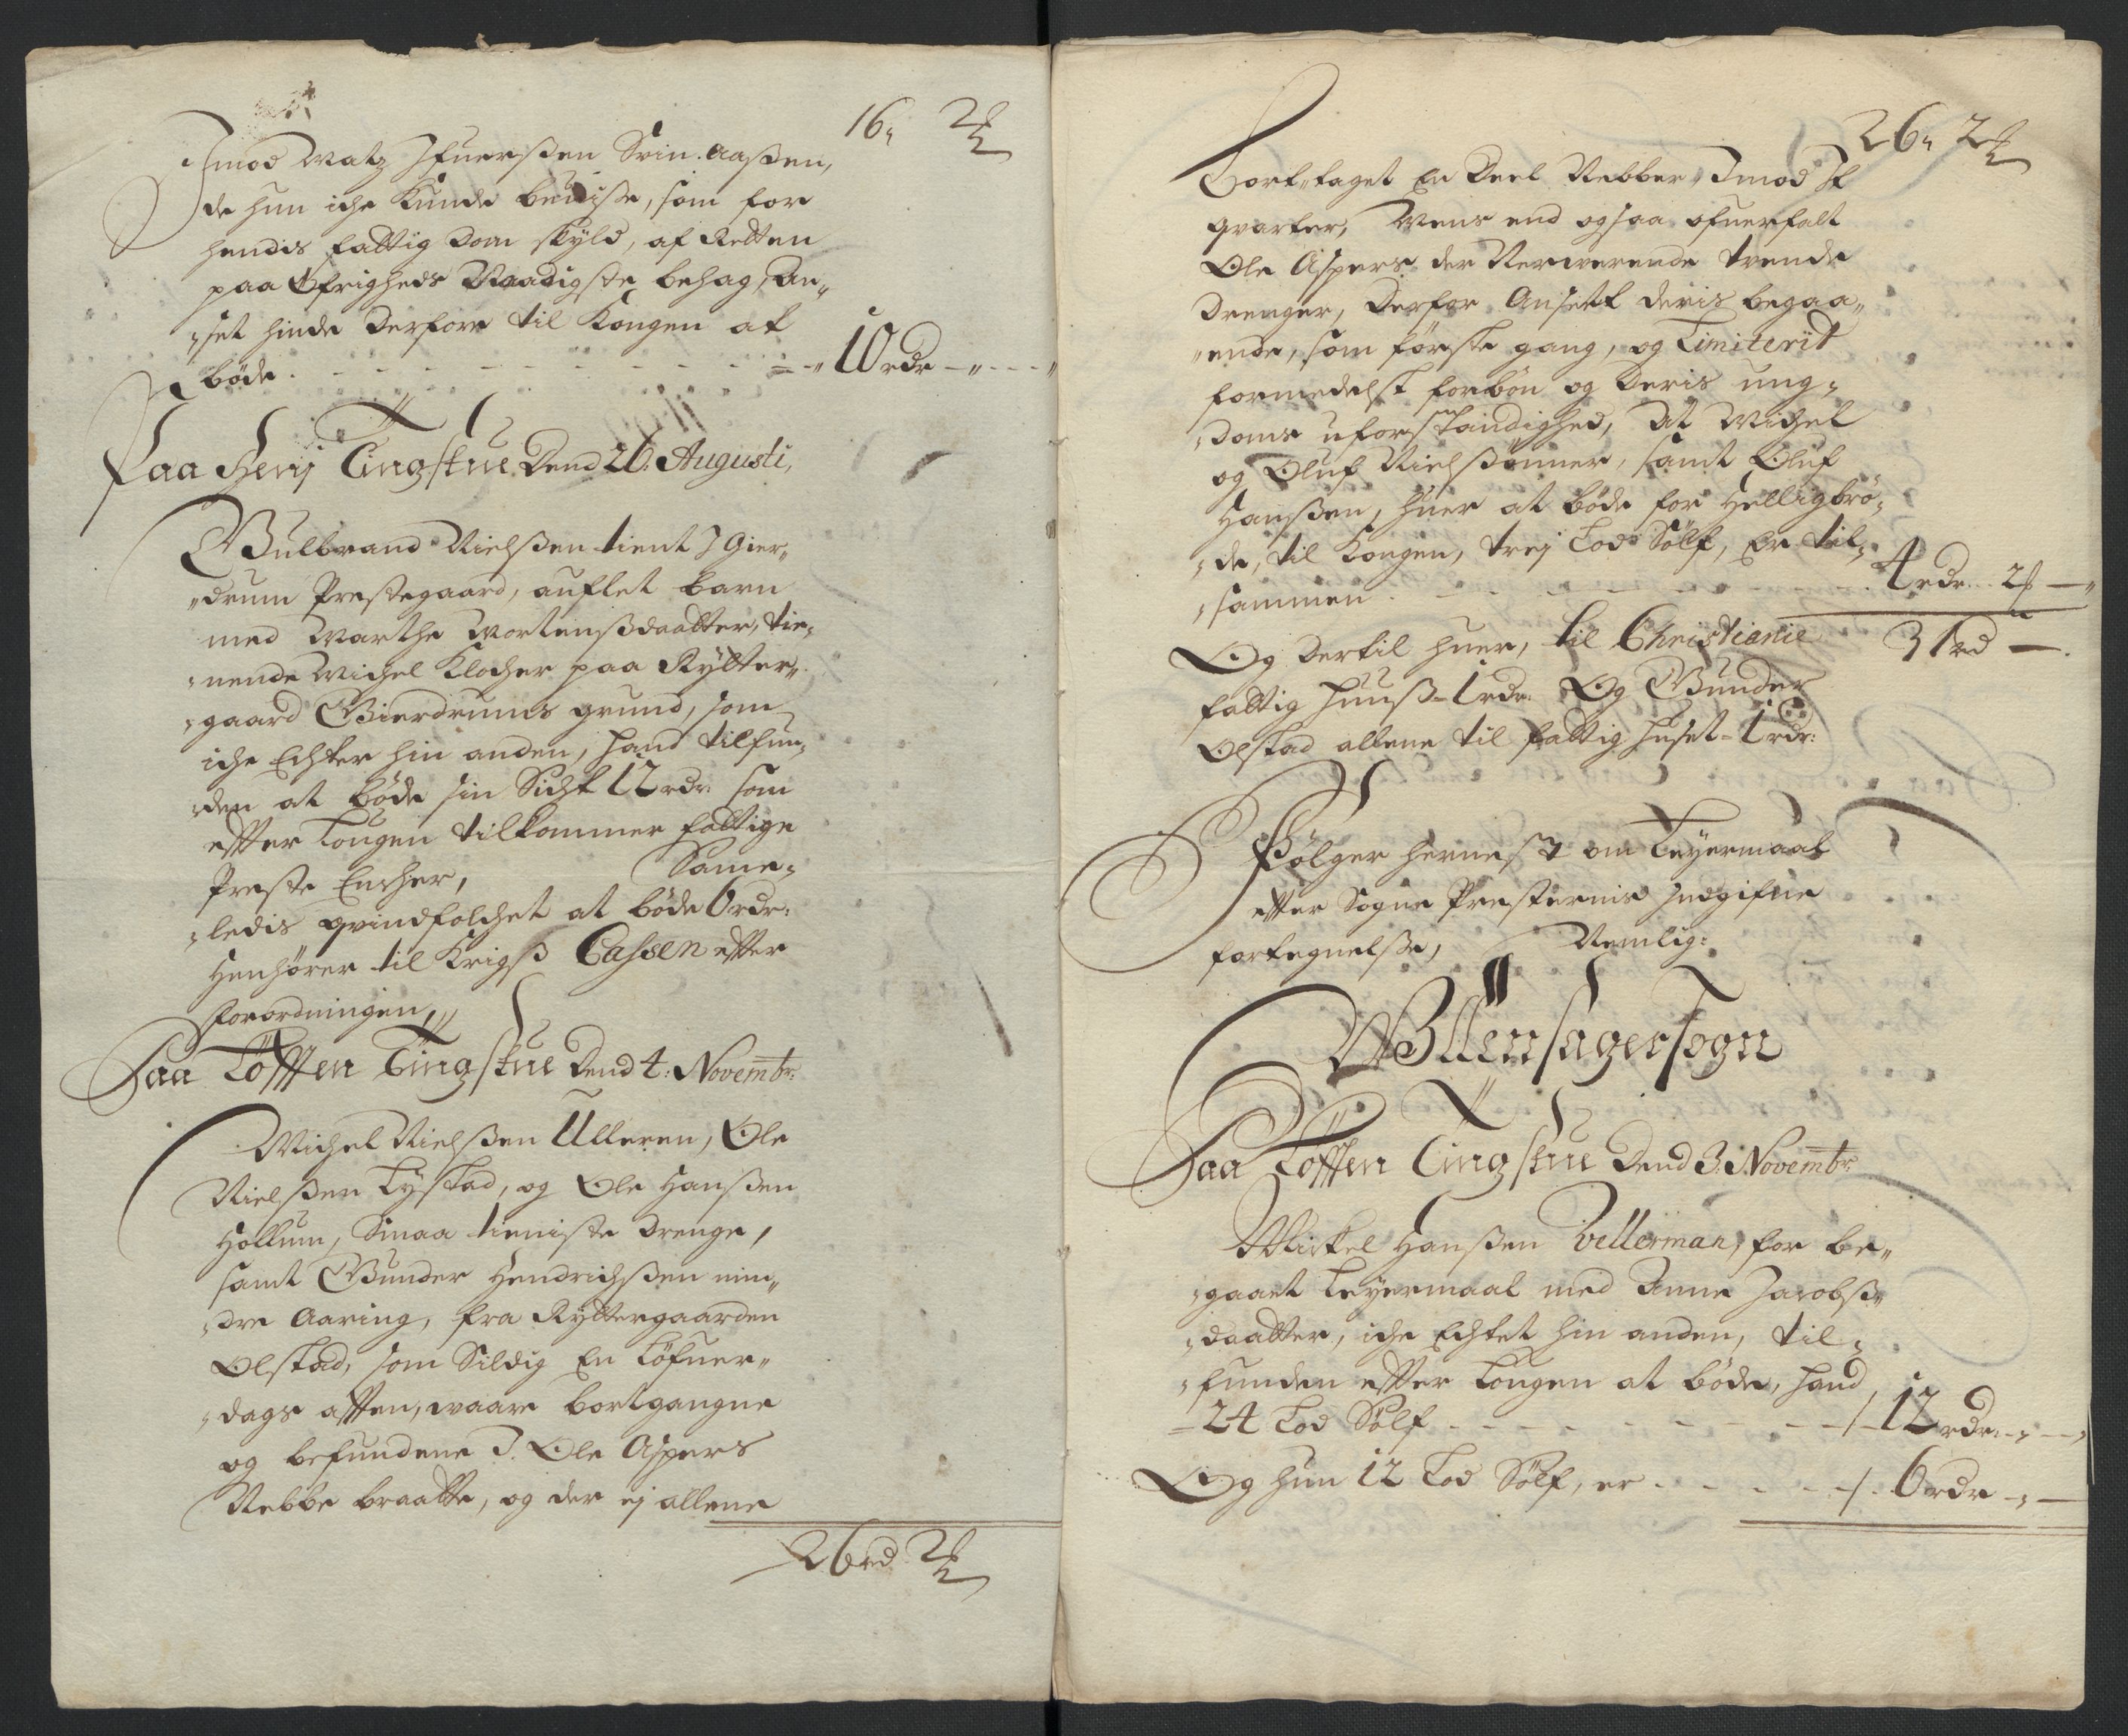 16„ 2½
Imod Matz Ifuerßen Svin. Aaßen,
de hun iche Kunde beviise, som for
hendis fattig dom skyld, af Retten
paa Øfrigheds Naadigste behag, An„
„set hinde Derfore til Kongen at
bøde . - - - - - - - - „10 rdr – „ – –
Paa Herij Tingstue Dend 26. Augusti,
Gulbrand Nielßen tient I Gier„
„drum Prestegaard, auflet barn
med Marthe Mortensdaatter, tie„
„nende Michel Klocher paa Rytter„
„gaard Gierdrums grund, som
iche Echter hin anden, hand tilfun„
„den at bøde sin Sicht 12 rdr som
effter Lougen tilkommer fattige
Preste Encher, Same„
„ledis qvindfolchet at bøde 6 rdr:
Henhører til Krigß Cassen effter
forordningen,
Paa Løfften Tingstue Dend 4: Novembr:
Michel Nielßen Ulleren, Ole
Nielßen Lystad, og Ole Hanßen
Hollum, Smaa tieniste drenge,
samt Gunder Hendrichßen min„
„dre Aaring, fra Ryttergaarden
Olstad, som Sildig En Løfuer„
„dags afften, waare bortgangne
og befundene I. Ole Aspers
Nebbe braatte, og der ej allene
26 rd 2½
26„ 2½
Bort„taget En Deel Nebber, Imod It
qvarter, Mens end ogsaa ofuerfalt
Ole Aspers der Nerwerende tvende
Drenger, Derfor Ansett deris begaa„
„ende, som første gang, og Limiterit
formedelst forbøn og Deris ung„
„doms uforstandighed, At Michel
og Oluf Nielsønner, samt Oluf
Hanßen, huer at bøde for Helligbrø„
„de, til Kongen, trej Lod Sølf, Er til„
„sammen . - - - - - - 4 rdr. 2 – „
Og Dertil huer, til Christianie 31 rd –.
fattig huuß – 1 rdr. Og Gunder
Olstad allene til fattig huset – 1 rdr:
Følger hernest om Leyermaal
effter Sogne Presternis Indgifne
fortegnelse, Nemlig:
Ullensagersogn
Paa Løfften Tingstue Dend 3. Novembr
Mickel Hanßen Vellerman, for be„
„gaaet Leyermaal med Anne Jacobs„
„daatter, iche Echtet hin anden, til„
„funden effter Lougen at bøde, hand
– 24 Lod Sølf - - - - - - 12 rdr – „ –
Og hun 12 Lod Sølf, er - - - - 6 rdr – „ –